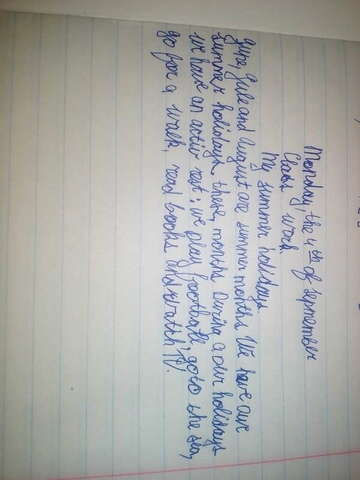 Monday the 4th of september
Class work
My summer holidays
June, Jule and August are summer months We have our
summer holidays these months During a our holidays
we have an activ rest: we play football, go to the sea,
go for a walk, read books and watch TV.